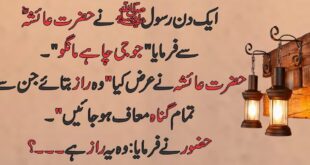 ایک دن رسولﷺ نے حضرت عائشہؓ
سے فرمایا "جو جی چاہے مانگو"۔
حضرت عائشہ نے عرض کیا "وہ راز بتائے جن سے
تمام گناہ معاف ہو جائیں"۔
حضور نے فرمایا: وہ یہ راز ہے ۔۔۔؟